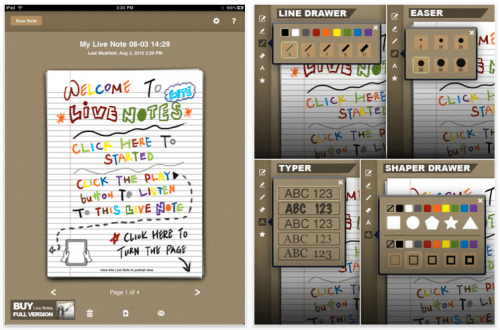 iPad
3:24 PM
100%
New Note
?
My Live Note 08-03 14:29
Last Modified: Aug 3, 2010 2:29 PM
WELCOME TO
LITE
LIVE NOTES
CLICK HERE TO
STARTED
CLICK THE PLAY
button TO LISTEN
TO THIS LIVE NOTE
CLICK HERE TO
TURN THE PAGE
View this Live Note in portrait view
Page 1 of 4
BUY Live Notes
FULL VERSION
LINE DRAWER
EASER
TYPER
ABC 123
ABC 123
ABC 123
ABC 123
ABC 123
SHAPER DRAWER